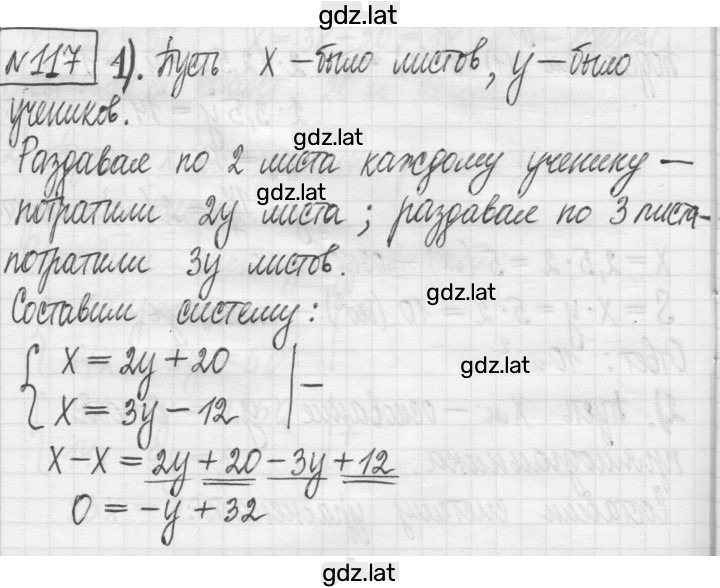 gdz.lat
№117. 1). Пусть x – было листов, y – было
учеников.
gdz.lat
Раздавая по 2 листа каждому ученику –
gdz.lat
потратили 2y листа; раздавая по 3 листа –
потратили 3y листов.
gdz.lat
Составим систему:
x = 2y + 20
gdz.lat
x = 3y – 12
x – x = 2y + 20 – 3y + 12
0 = –y + 32
gdz.lat